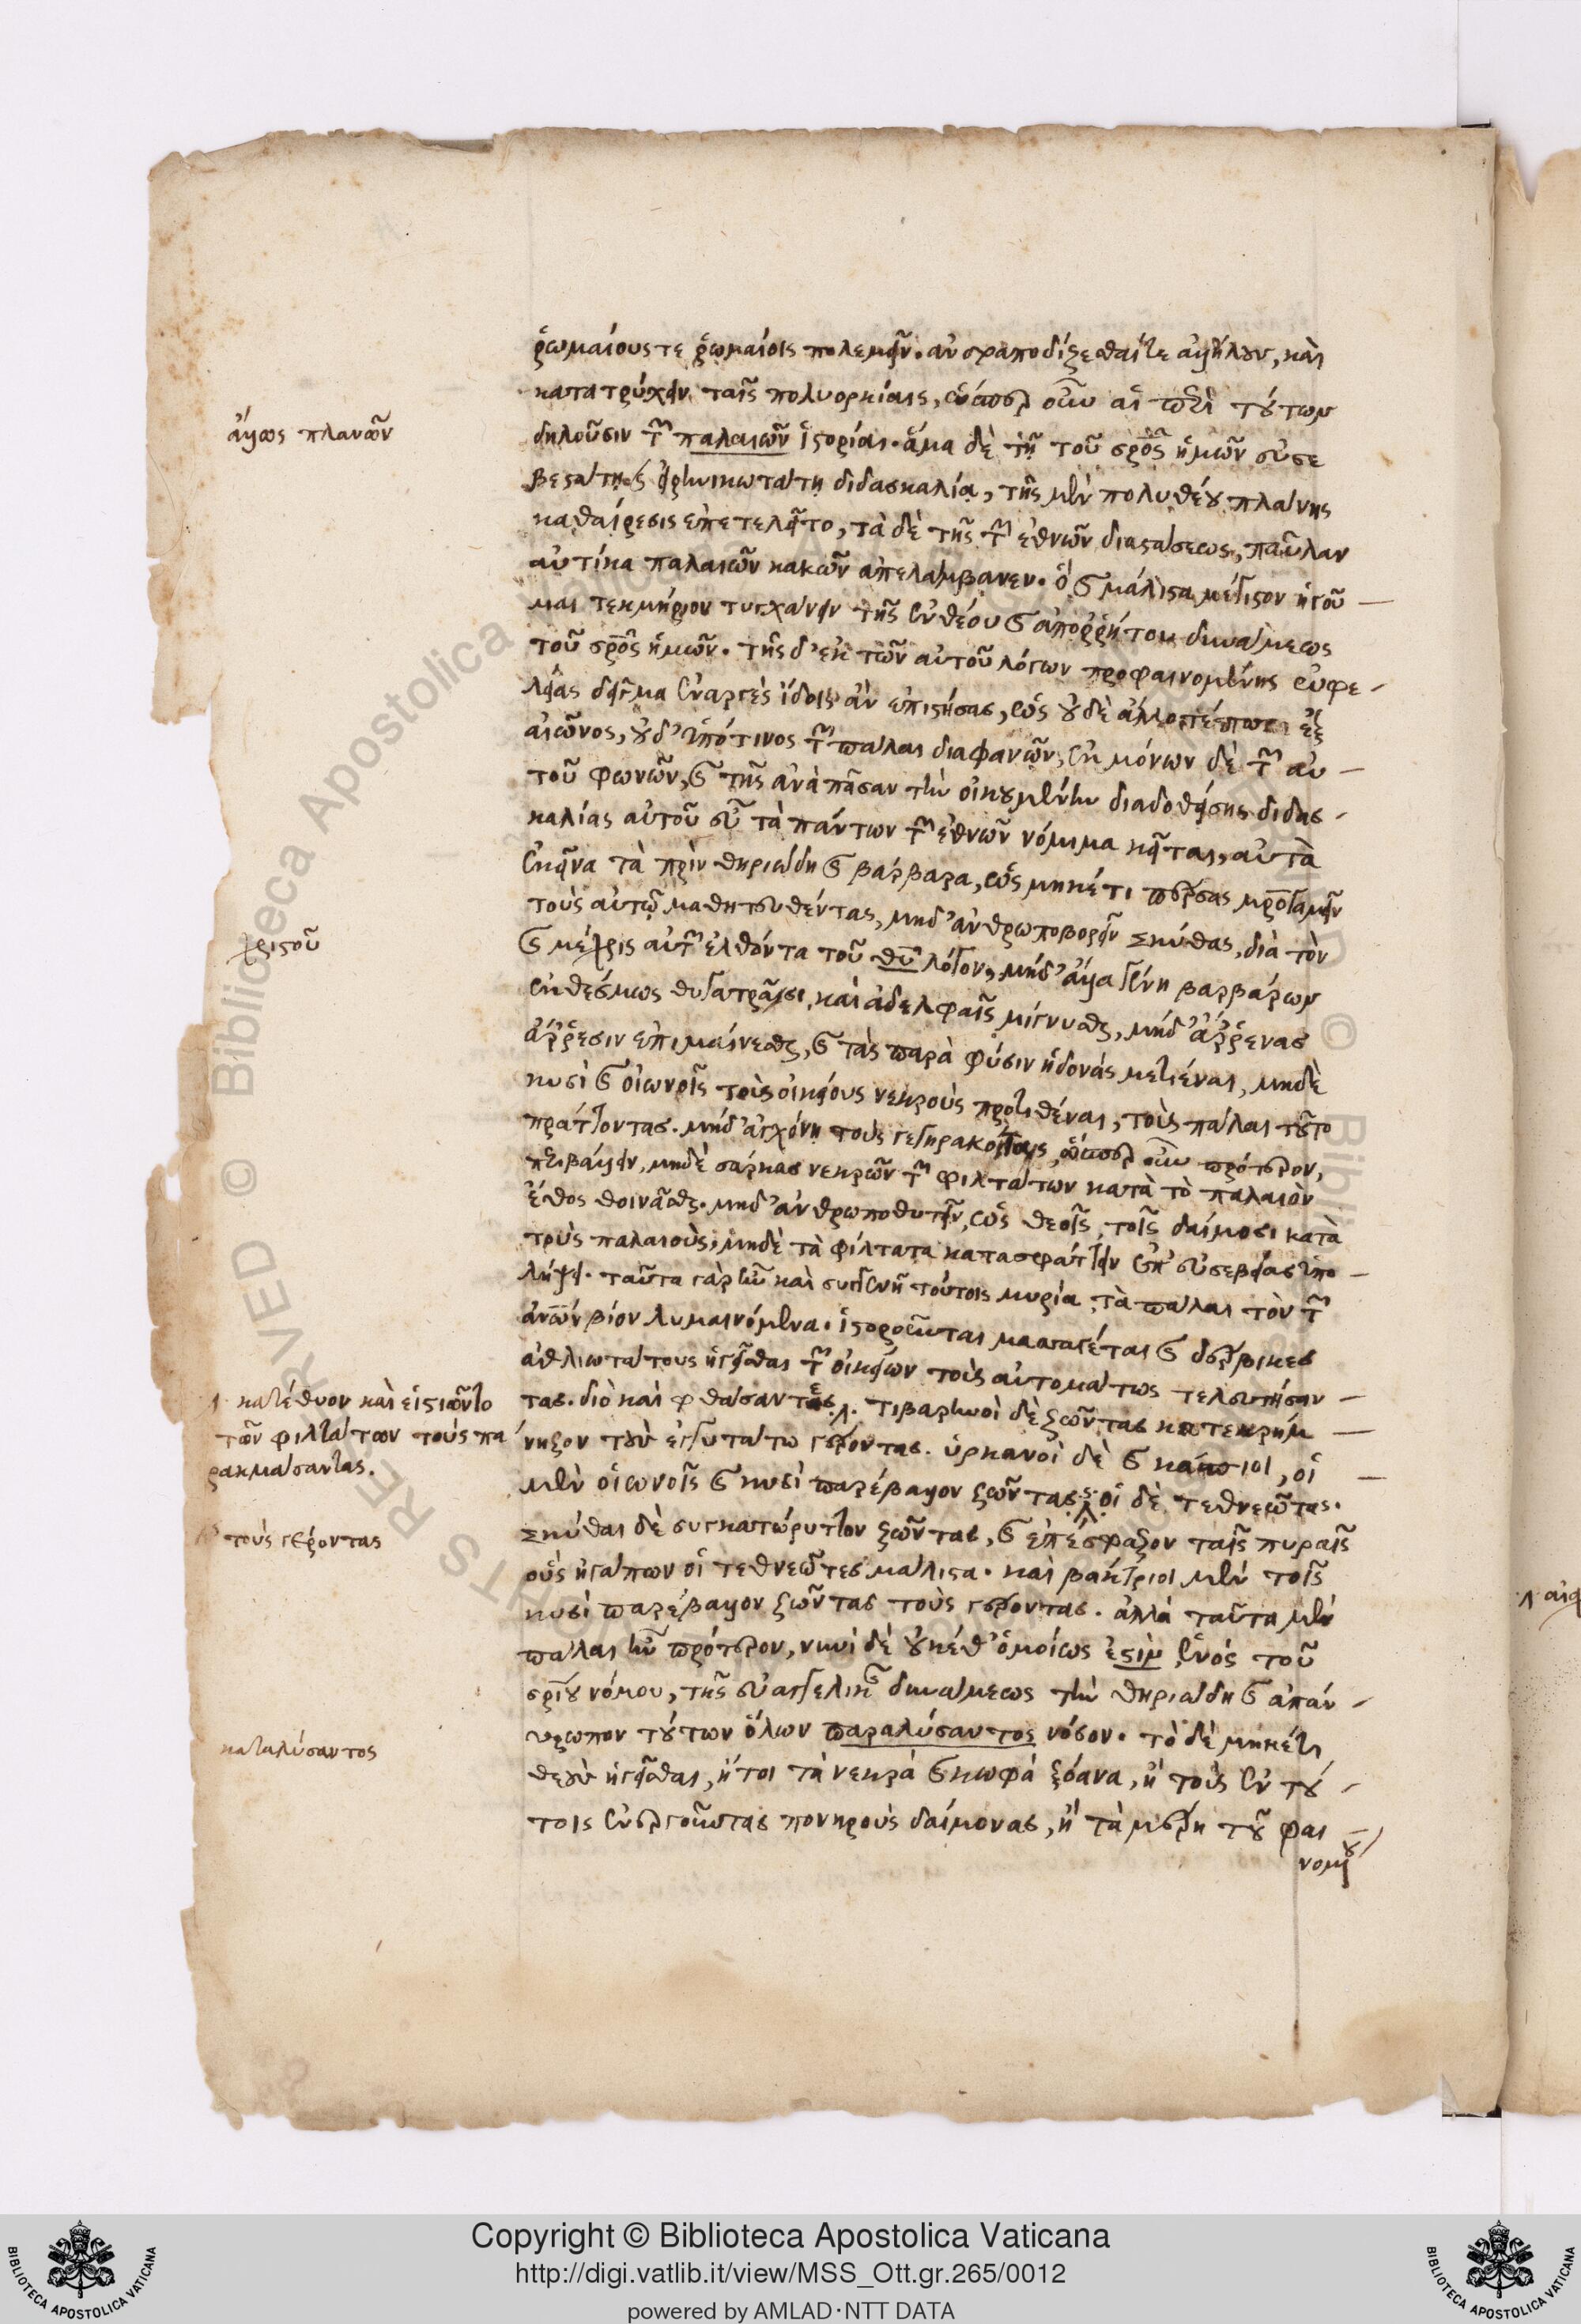 ῥωμαίους τε ῥωμαίοις πολεμεῖν. ἀνδραποδίζεσθαί τε ἀλλήλους, καὶ
κατατρύχειν ταῖς πολιορκίαις, ὥσπερ οὖν αἱ περὶ τούτων
ἄλλως πλανῶν
δηλοῦσιν τῶν παλαιῶν ἱστορίαι. ἅμα δὲ τῇ τοῦ σρ̅ο̅ς ἡμῶν εὐσε
βεστάτῃ καὶ εἰρηνικωτάτῃ διδασκαλίᾳ, τῆς μὲν πολυθέου πλάνης
καθαίρεσις ἐπετελεῖτο, τὰ δὲ τῆς τῶν ἐθνῶν διαστάσεως, παῦλαν
αὐτίκα παλαιῶν κακῶν ἀπελάμβανεν. ὃ καὶ μάλιστα μέγιστον ἡγοῦ
μαι τεκμήριον τυγχάνειν τῆς ἐνθέου καὶ ἀπορρήτου δυνάμεως
τοῦ σρ̅ο̅ς ἡμῶν. τῆς δ' ἐκ τῶν αὐτοῦ λόγων προφαινομένης ὠφε
λείας δεῖγμα ἐναργὲς ἴδοις ἂν ἐπιστήσας, ὡς οὐδὲ ἄλλοτέ πω ἐξ
αἰῶνος, οὐδ' ὑπό τινος τῶν πάλαι διαφανῶν, ἐκ μόνων δὲ τῶν αὐ
τοῦ φωνῶν, καὶ τῆς ἀνὰ πᾶσαν τὴν οἰκουμένην διαδοθείσης διδας
καλίας αὐτοῦ εὖ τὰ πάντων τῶν ἐθνῶν νόμιμα κεῖται, αὐτὰ
ἐκεῖνα τὰ πρὶν θηριώδη καὶ βάρβαρα, ὡς μηκέτι πέρσας μρ̅ο̅γαμεῖν
τοὺς αὐτῷ μαθητευθέντας, μηδ' ἀνθρωποβορεῖν σκύθας, διὰ τὸν
χριστοῦ
καὶ μέχρις αὐτῶν ἐλθόντα τοῦ θυ̅ λόγον, μηδ' ἄλλα γένη βαρβάρων
ἐκθέσμως θυγατράσι καὶ ἀδελφαῖς μίγνυσθαι, μηδ' ἄρρενας
ἄρρεσιν ἐπιμαίνεσθαι, καὶ τὰς παρὰ φύσιν ἡδονὰς μετιέναι, μηδὲ
κυσὶ καὶ οἰωνοῖς τοὺς οἰκείους νεκροὺς προτιθέναι, τοὺς πάλαι τοῦτο
πράττοντας. μηδ' ἀγχόνῃ τοὺς γεγηρακότας, ὥσπερ οὖν πρότερον,
περιβάλλειν, μηδὲ σάρκας νεκρῶν τῶν φιλτάτων κατὰ τὸ παλαιὸν
ἔθος θοινᾶσθαι. μηδ' ἀνθρωποθυτεῖν, ὡς θεοῖς, τοῖς δαίμοσι κατὰ
τοὺς παλαιούς, μηδὲ τὰ φίλτατα κατασφάττειν ἐπ' εὐσεβείας ὑπο
λήψει. ταῦτα γὰρ ἦν καὶ συγγενῆ τούτοις μυρία, τὰ πάλαι τὸν τῶν
ἀν̅ω̅ν βίον λυμαινόμενα. ἱστοροῦνται μασσαγέται καὶ δέρβικες
ἀθλιωτάτους ἡγεῖσθαι τῶν οἰκείων τοὺς αὐτομάτως τελευτήσαν
λ. κατέθυον καὶ εἱστιῶντο
τῶν φιλτάτων τοὺς πα
ρακμάσαντας.
τας. διὸ καὶ φθάσαντες .λ. τιβαρηνοὶ δὲ ζῶντας κατεκρήμ
νηζον τοὺς ἐγγυτάτω γέροντας. ὑρκανοὶ δὲ καὶ κάσπιοι, οἱ
μὲν οἰωνοῖς καὶ κυσὶ παρέβαλλον ζῶντας· οἱ δὲ τεθνεῶτας.
τοὺς γέροντας
σκύθαι δὲ συγκατώρυττον ζῶντας, καὶ ἐπέσφαζον ταῖς πυραῖς
οὓς ἠγάπων οἱ τεθνεῶτες μάλιστα. καὶ βάκτριοι μὲν τοῖς
κυσὶ παρέβαλλον ζῶντας τοὺς γέροντας. ἀλλὰ ταῦτα μὲν
πάλαι ἦν πρότερον, νυνὶ δὲ οὐκέθ' ὁμοίως ἐστὶν, ἑνὸς τοῦ
σρ̅ίου νόμου, τῆς εὐαγγελικῆς δυνάμεως τὴν θηριώδη καὶ ἀπάν
καταλύσαντος
θρωπον τούτων ὅλων παραλύσαντος νόσον. τὸ δὲ μηκέτι
θεοὺς ἡγεῖσθαι, ἤτοι τὰ νεκρὰ καὶ κωφὰ ξόανα, ἢ τοὺς ἐν τού
τοις ἐνεργοῦντας πονηροὺς δαίμονας, ἢ τὰ μέρη τοῦ φαι
νομέ
Copyright © Biblioteca Apostolica Vaticana
http://digi.vatlib.it/view/MSS_Ott.gr.265/0012
powered by AMLAD·NTT DATA
BIBLIOTECA APOSTOLICA VATICANA
BIBLIOTECA APOSTOLICA VATICANA